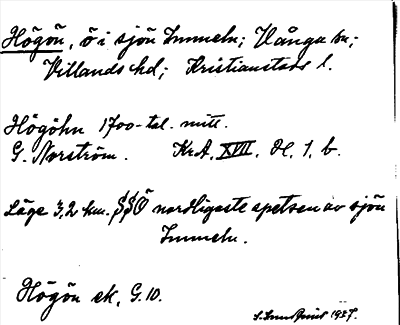 Högön, ö i sjön Immeln; Vånga sn;
Villands hd; Kristianstads l.
Högöhn 1700-tal. mitt.
G. Norström. Kr.A. XVII. Sk. 1. b.
Läge 3,2 km. SSÖ nordligaste spetsen av sjön
Immeln.
Högön ek. G.10.
1927.